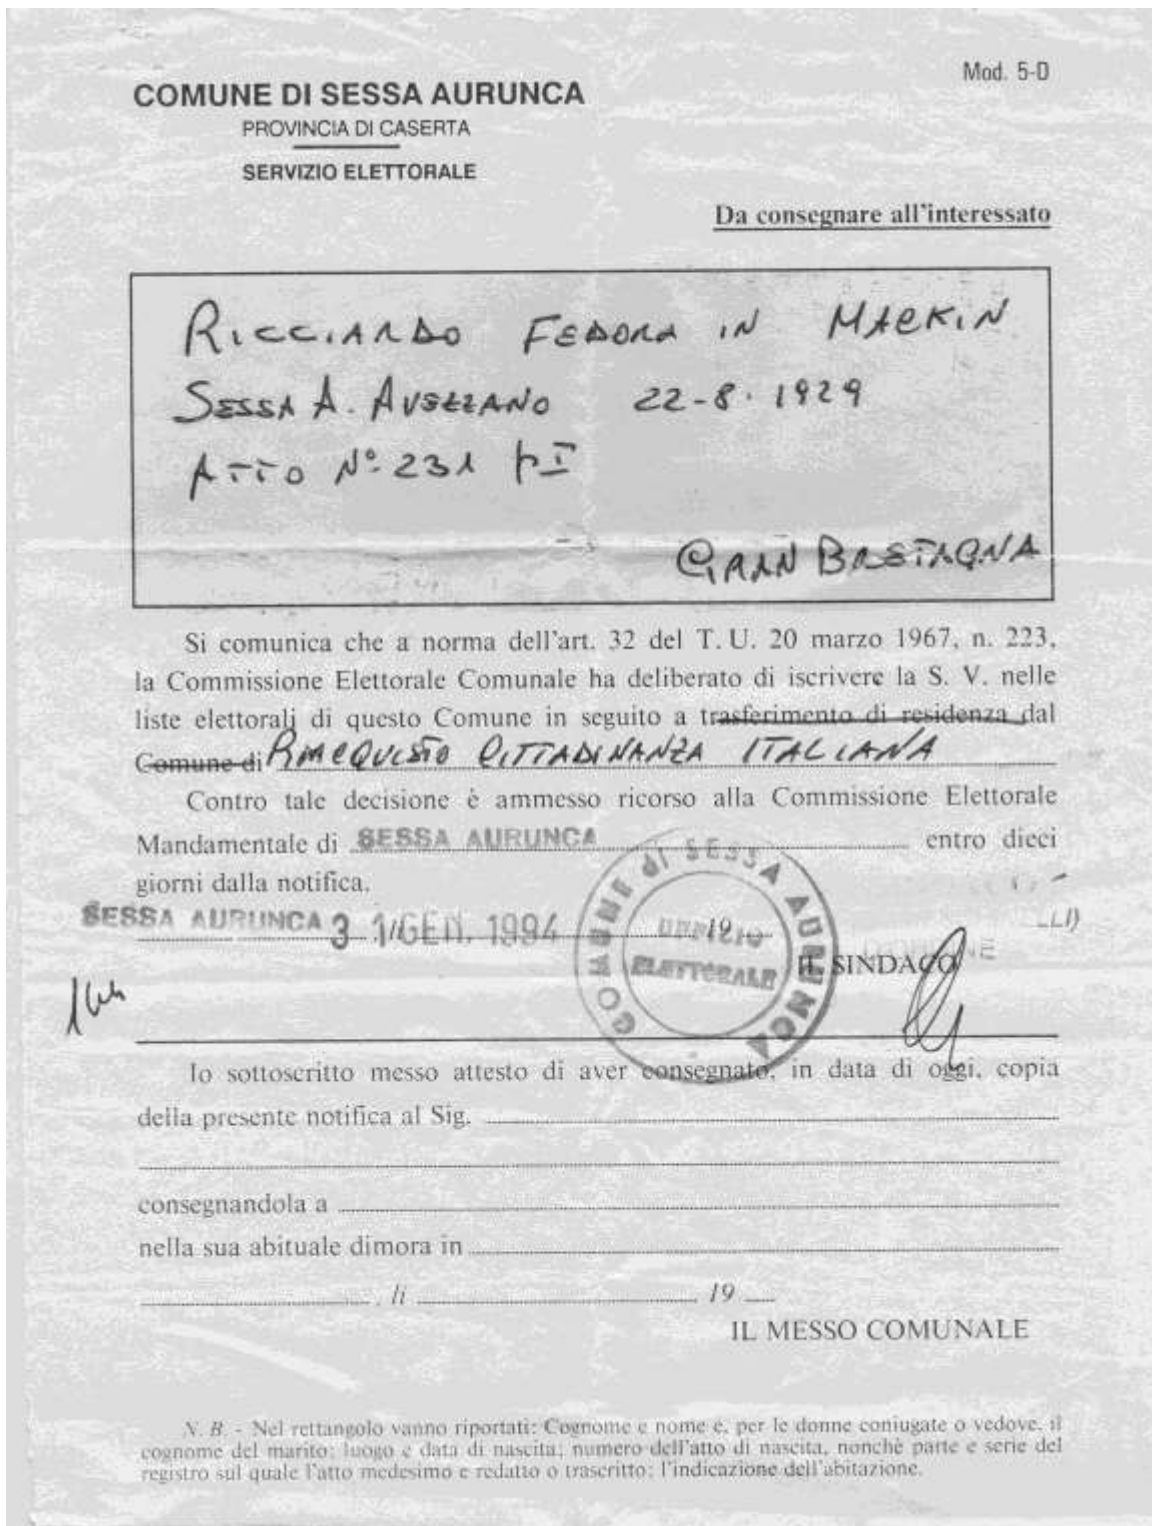 Mod. 5-D
COMUNE DI SESSA AURUNCA
PROVINCIA DI CASERTA
SERVIZIO ELETTORALE
Da consegnare all'interessato
RICCIARDO FEDORA IN MACKIN
SESSA A. AVEZZANO 22-8-1929
ATTO N° 231 pI
GRAN BRETAGNA
Si comunica che a norma dell'art. 32 del T. U. 20 marzo 1967, n. 223,
la Commissione Elettorale Comunale ha deliberato di iscrivere la S. V. nelle
liste elettorali di questo Comune in seguito a trasferimento di residenza dal
Comune di RIACQUISTO CITTADINANZA ITALIANA
Contro tale decisione è ammesso ricorso alla Commissione Elettorale
Mandamentale di SESSA AURUNCA entro dieci
giorni dalla notifica.
SESSA AURUNCA 31 GEN. 1994 19
COMUNE di SESSA AURUNCA
UFFICIO
ELETTORALE
IL SINDACO
Io sottoscritto messo attesto di aver consegnato, in data di oggi, copia
della presente notifica al Sig.
consegnandola a
nella sua abituale dimora in
, li 19
IL MESSO COMUNALE
N. B. - Nel rettangolo vanno riportati: Cognome e nome e, per le donne coniugate o vedove, il
cognome del marito; luogo e data di nascita; numero dell'atto di nascita, nonchè parte e serie del
registro sul quale l'atto medesimo e redatto o trascritto; l'indicazione dell'abitazione.